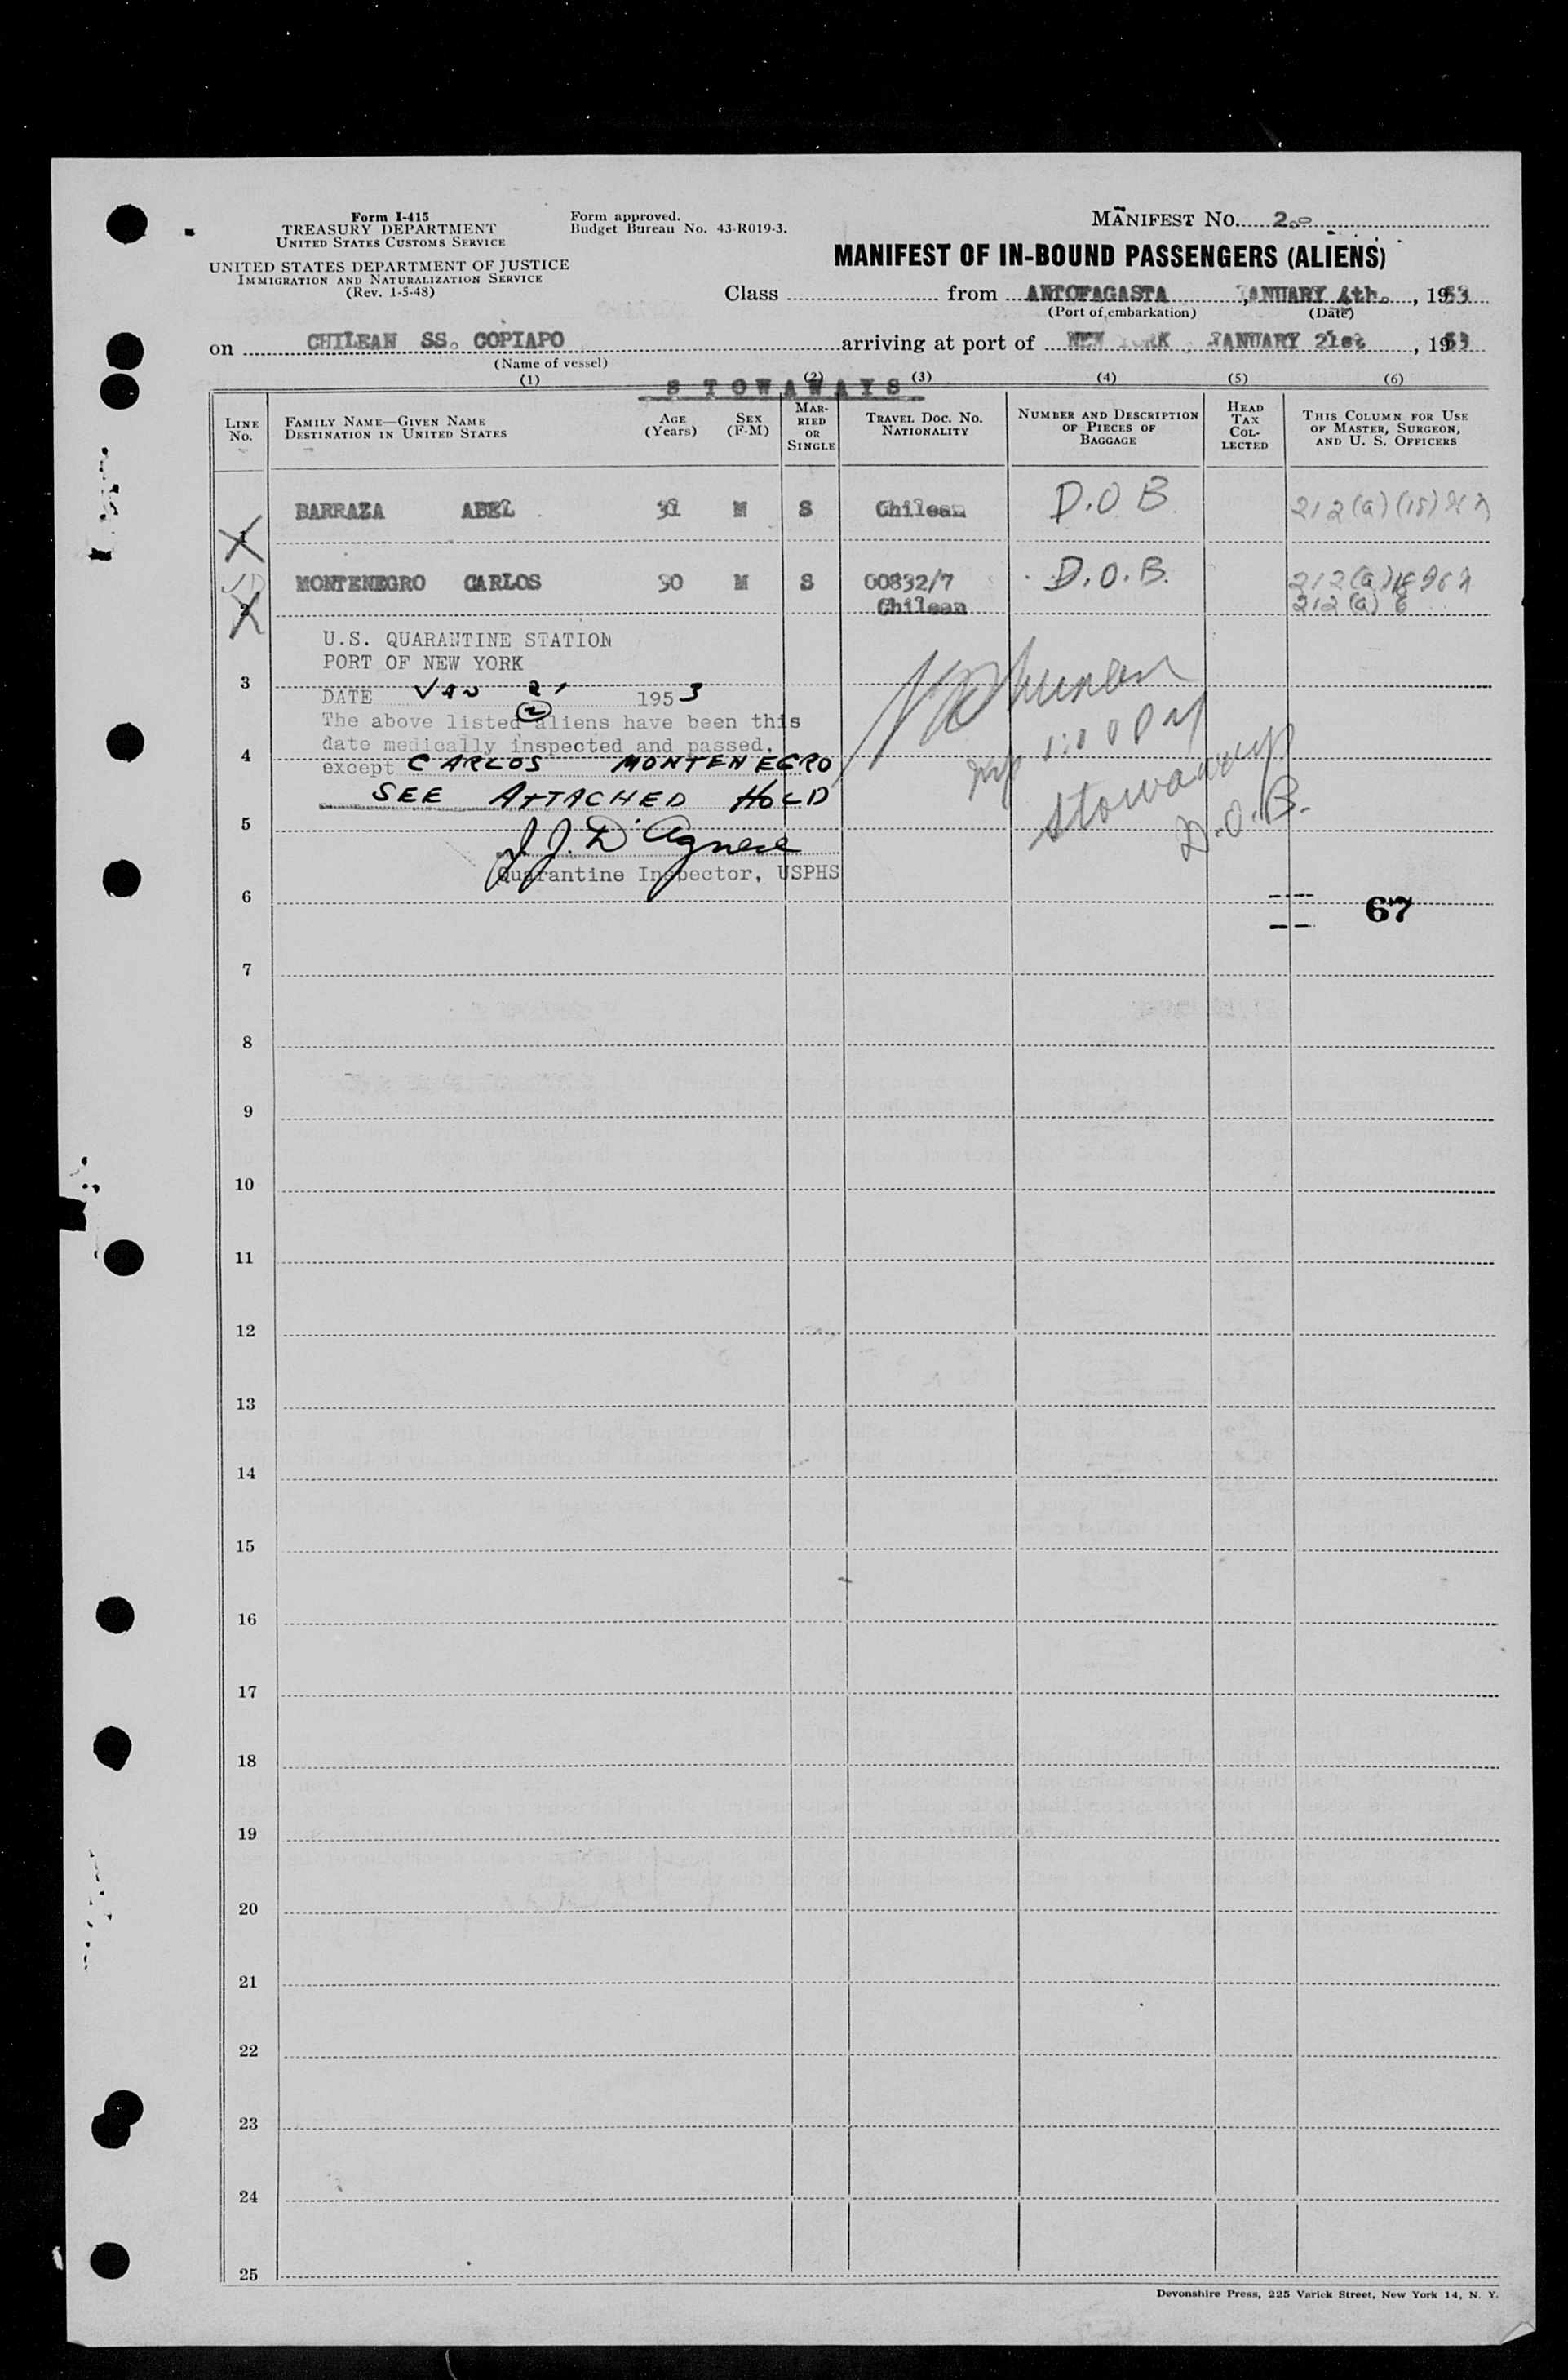 Form I-415
TREASURY DEPARTMENT
UNITED STATES CUSTOMS SERVICE
UNITED STATES DEPARTMENT OF JUSTICE
IMMIGRATION AND NATURALIZATION SERVICE
(Rev. 1-5-48)
Form approved.
Budget Bureau No. 43-R019-3.
MANIFEST NO. 2
MANIFEST OF IN-BOUND PASSENGERS (ALIENS)
Class from ANTOFAGASTA, JANUARY 4th., 1953
(Port of embarkation) (Date)
on CHILEAN SS. COPIAPO arriving at port of NEW YORK, JANUARY 21st, 1953
(Name of vessel)
(1) (2) (3) (4) (5) (6)
STOWAWAYS
LINE No. FAMILY NAME—GIVEN NAME DESTINATION IN UNITED STATES AGE (Years) SEX (F-M) MARRIED OR SINGLE TRAVEL DOC. NO. NATIONALITY NUMBER AND DESCRIPTION OF PIECES OF BAGGAGE HEAD TAX COLLECTED THIS COLUMN FOR USE OF MASTER, SURGEON, AND U. S. OFFICERS
1 BARRAZA ABEL M S Chilean D.O.B. 212(a)(18)
2 MONTENEGRO CARLOS 30 M S 00832/7 D.O.B. 212(a)18
Chilean 212(a) 6
U.S. QUARANTINE STATION
PORT OF NEW YORK
3
DATE JAN 21 1953
The above listed 2 aliens have been this
date medically inspected and passed,
4
except CARLOS MONTENEGRO
SEE ATTACHED HOLD
5
J. J. D'Agnese
Quarantine Inspector, USPHS
NY 1:00 PM
Stowaways
D.O.B.
6
67
7
8
9
10
11
12
13
14
15
16
17
18
19
20
21
22
23
24
25
Devonshire Press, 225 Varick Street, New York 14, N. Y.